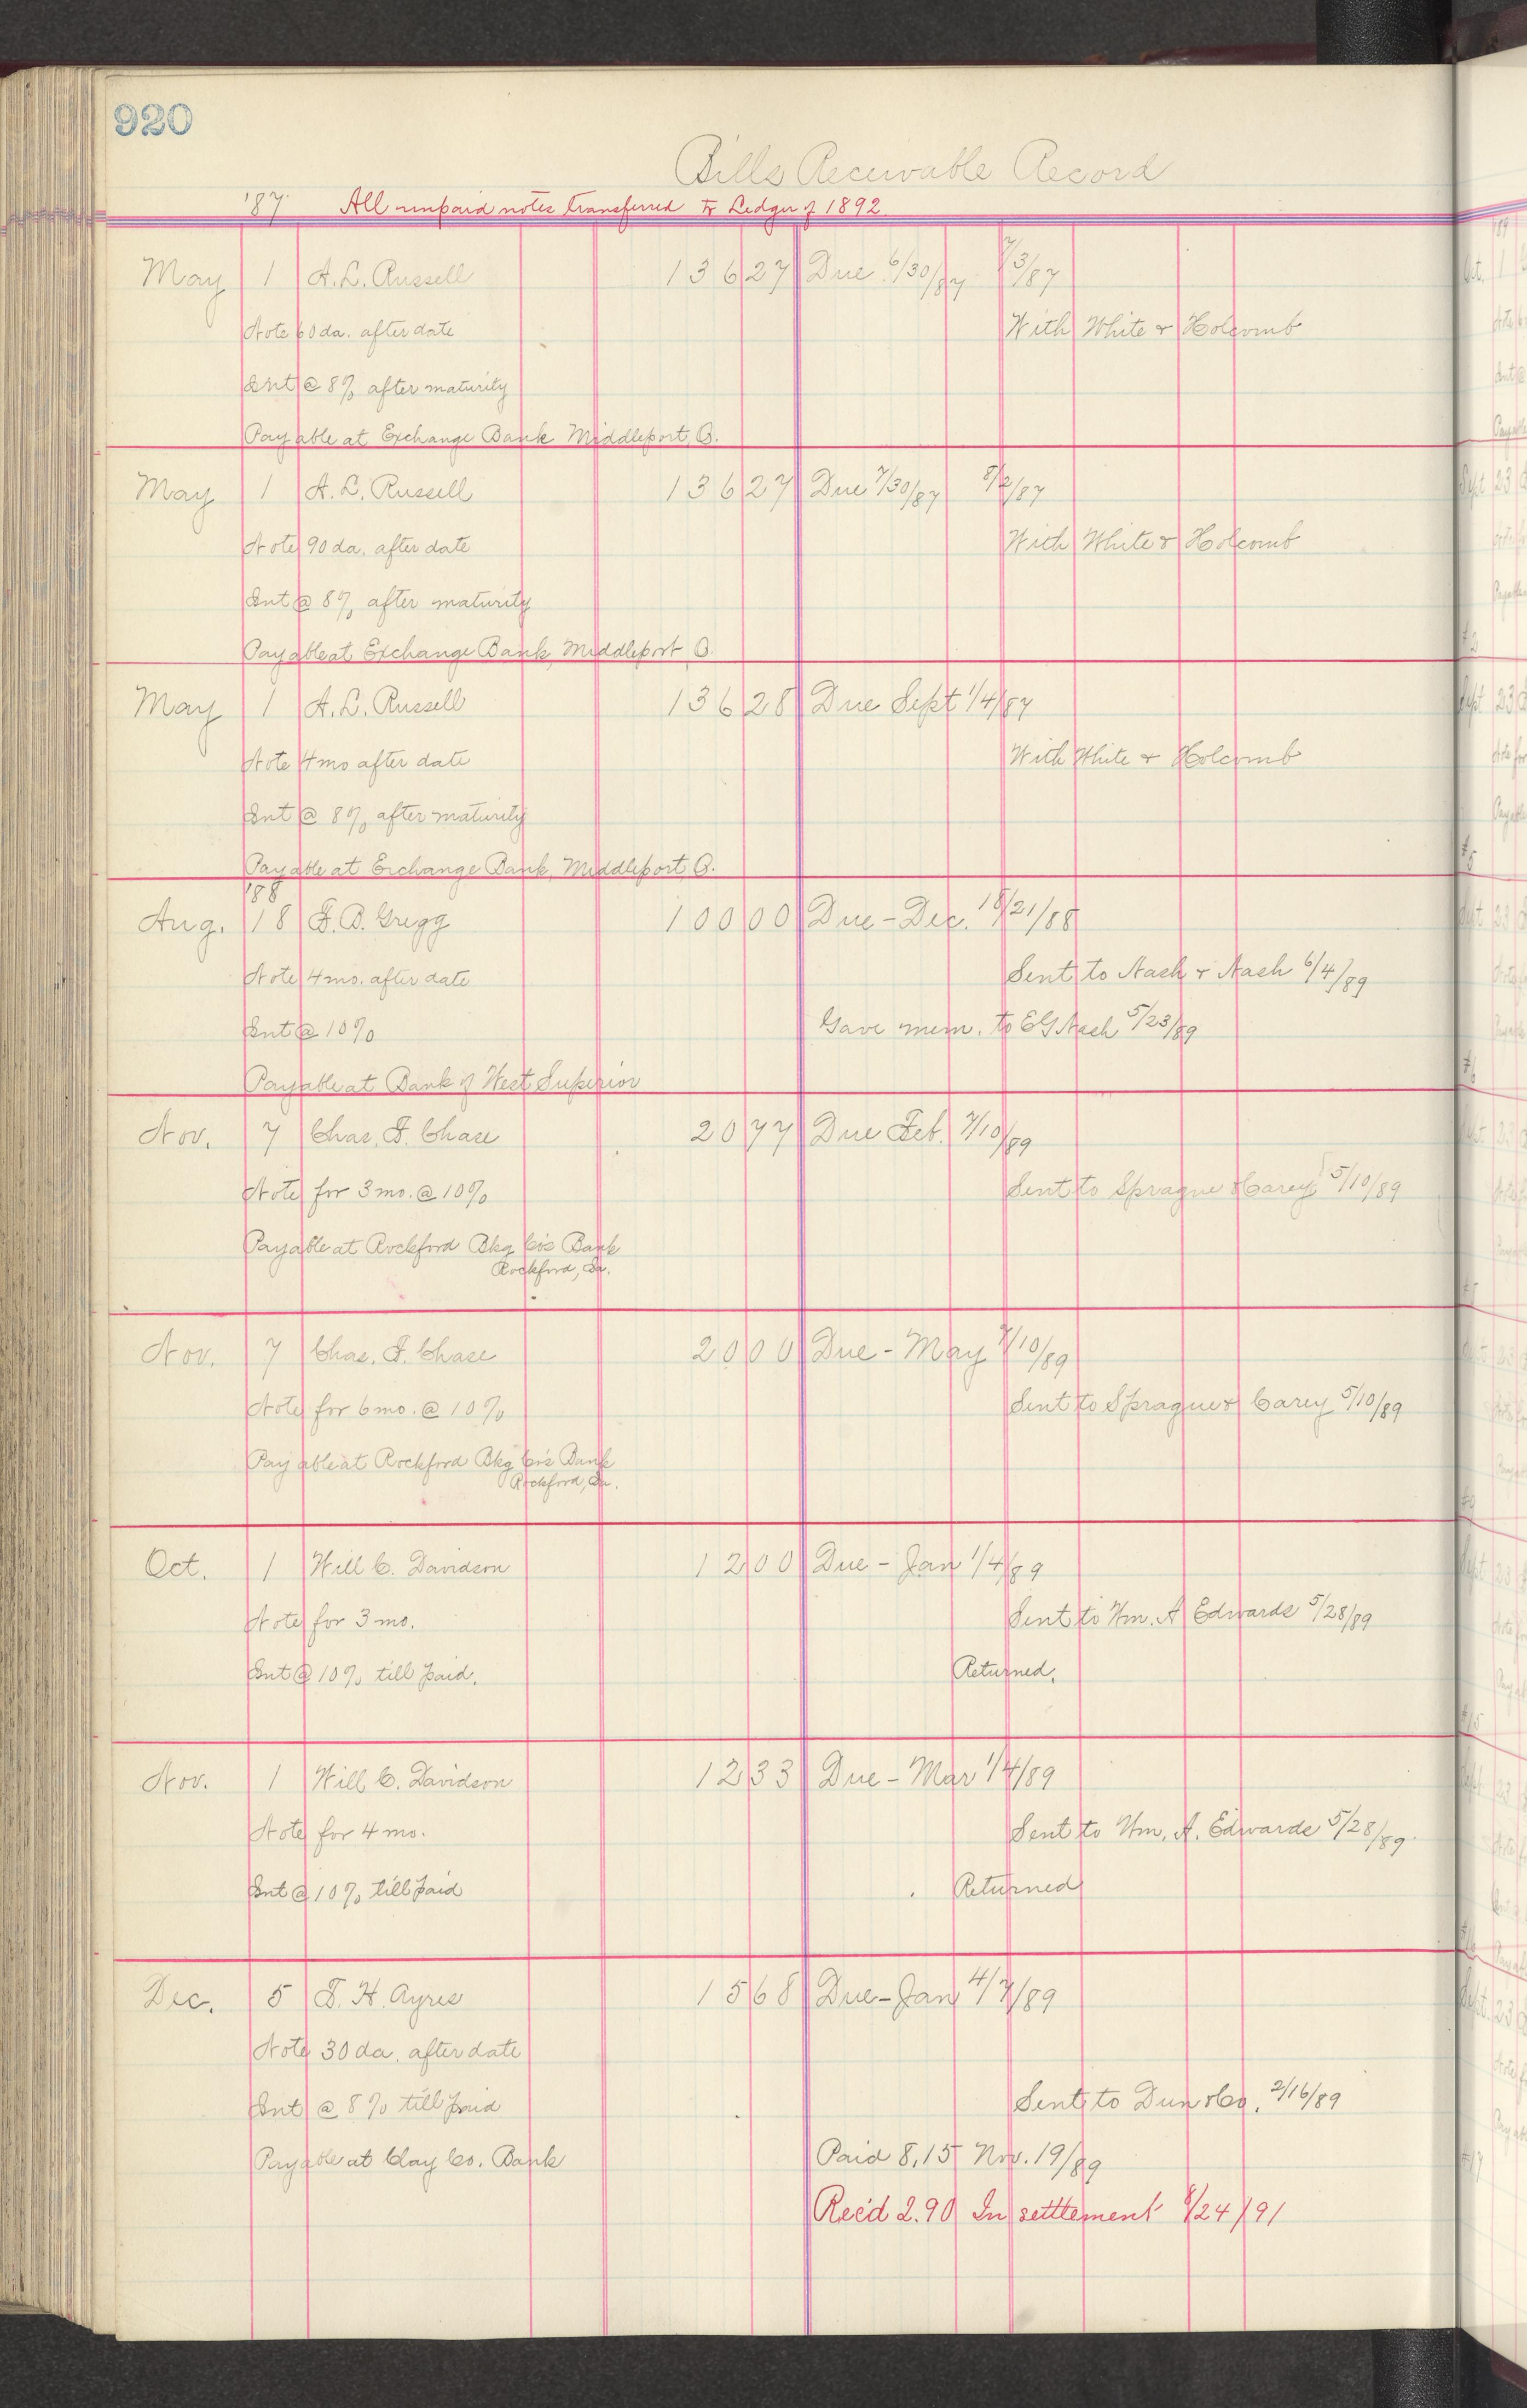 920
Bills Receivable Record
'87. All unpaid notes transferred to Ledger of 1892.
May 1 A. L. Russell 136 27 Due 6/30/87 7/3/87
Note 60 da. after date With White & Holcomb
Int @ 8% after maturity
Payable at Exchange Bank Middleport, O.
May 1 A. L. Russell 136 27 Due 7/30/87 8/2/87
Note 90 da. after date With White & Holcomb
Int @ 8% after maturity
Payable at Exchange Bank, Middleport O.
May 1 A. L. Russell 136 28 Due Sept 1/4/87
Note 4 mo after date With White & Holcomb
Int @ 8% after maturity
Payable at Exchange Bank, Middleport, O.
'88
Aug. 18 F. B. Gregg 100 00 Due - Dec. 18/21/88
Note 4 mo. after date Sent to Nash & Nash 6/4/89
Int @ 10% Gave mem. to EG Nash 5/23/89
Payable at Bank of West Superior
Nov. 7 Chas. F. Chase 20 77 Due Feb. 7/10/89
Note for 3 mo. @ 10% Sent to Sprague & Carey 5/10/89
Payable at Rockford Bkg Co's Bank
Rockford, Ia.
Nov. 7 Chas. F. Chase 20 00 Due - May 7/10/89
Note for 6 mo. @ 10% Sent to Sprague & Carey 5/10/89
Payable at Rockford Bkg Co's Bank
Rockford, Ia.
Oct. 1 Will C. Davidson 12 00 Due - Jan 1/4/89
Note for 3 mo. Sent to Wm. A Edwards 5/28/89
Int @ 10% till paid. Returned.
Nov. 1 Will C. Davidson 12 33 Due - Mar 1/4/89
Note for 4 mo. Sent to Wm. A. Edwards 5/28/89
Int @ 10% till paid Returned
Dec. 5 F. H. Ayres 15 68 Due - Jan 4/7/89
Note 30 da. after date
Int @ 8% till paid Sent to Dun & Co. 2/16/89
Payable at Clay Co. Bank Paid 8.15 Nov. 19/89
Rec'd 2.90 In settlement 8/24/91